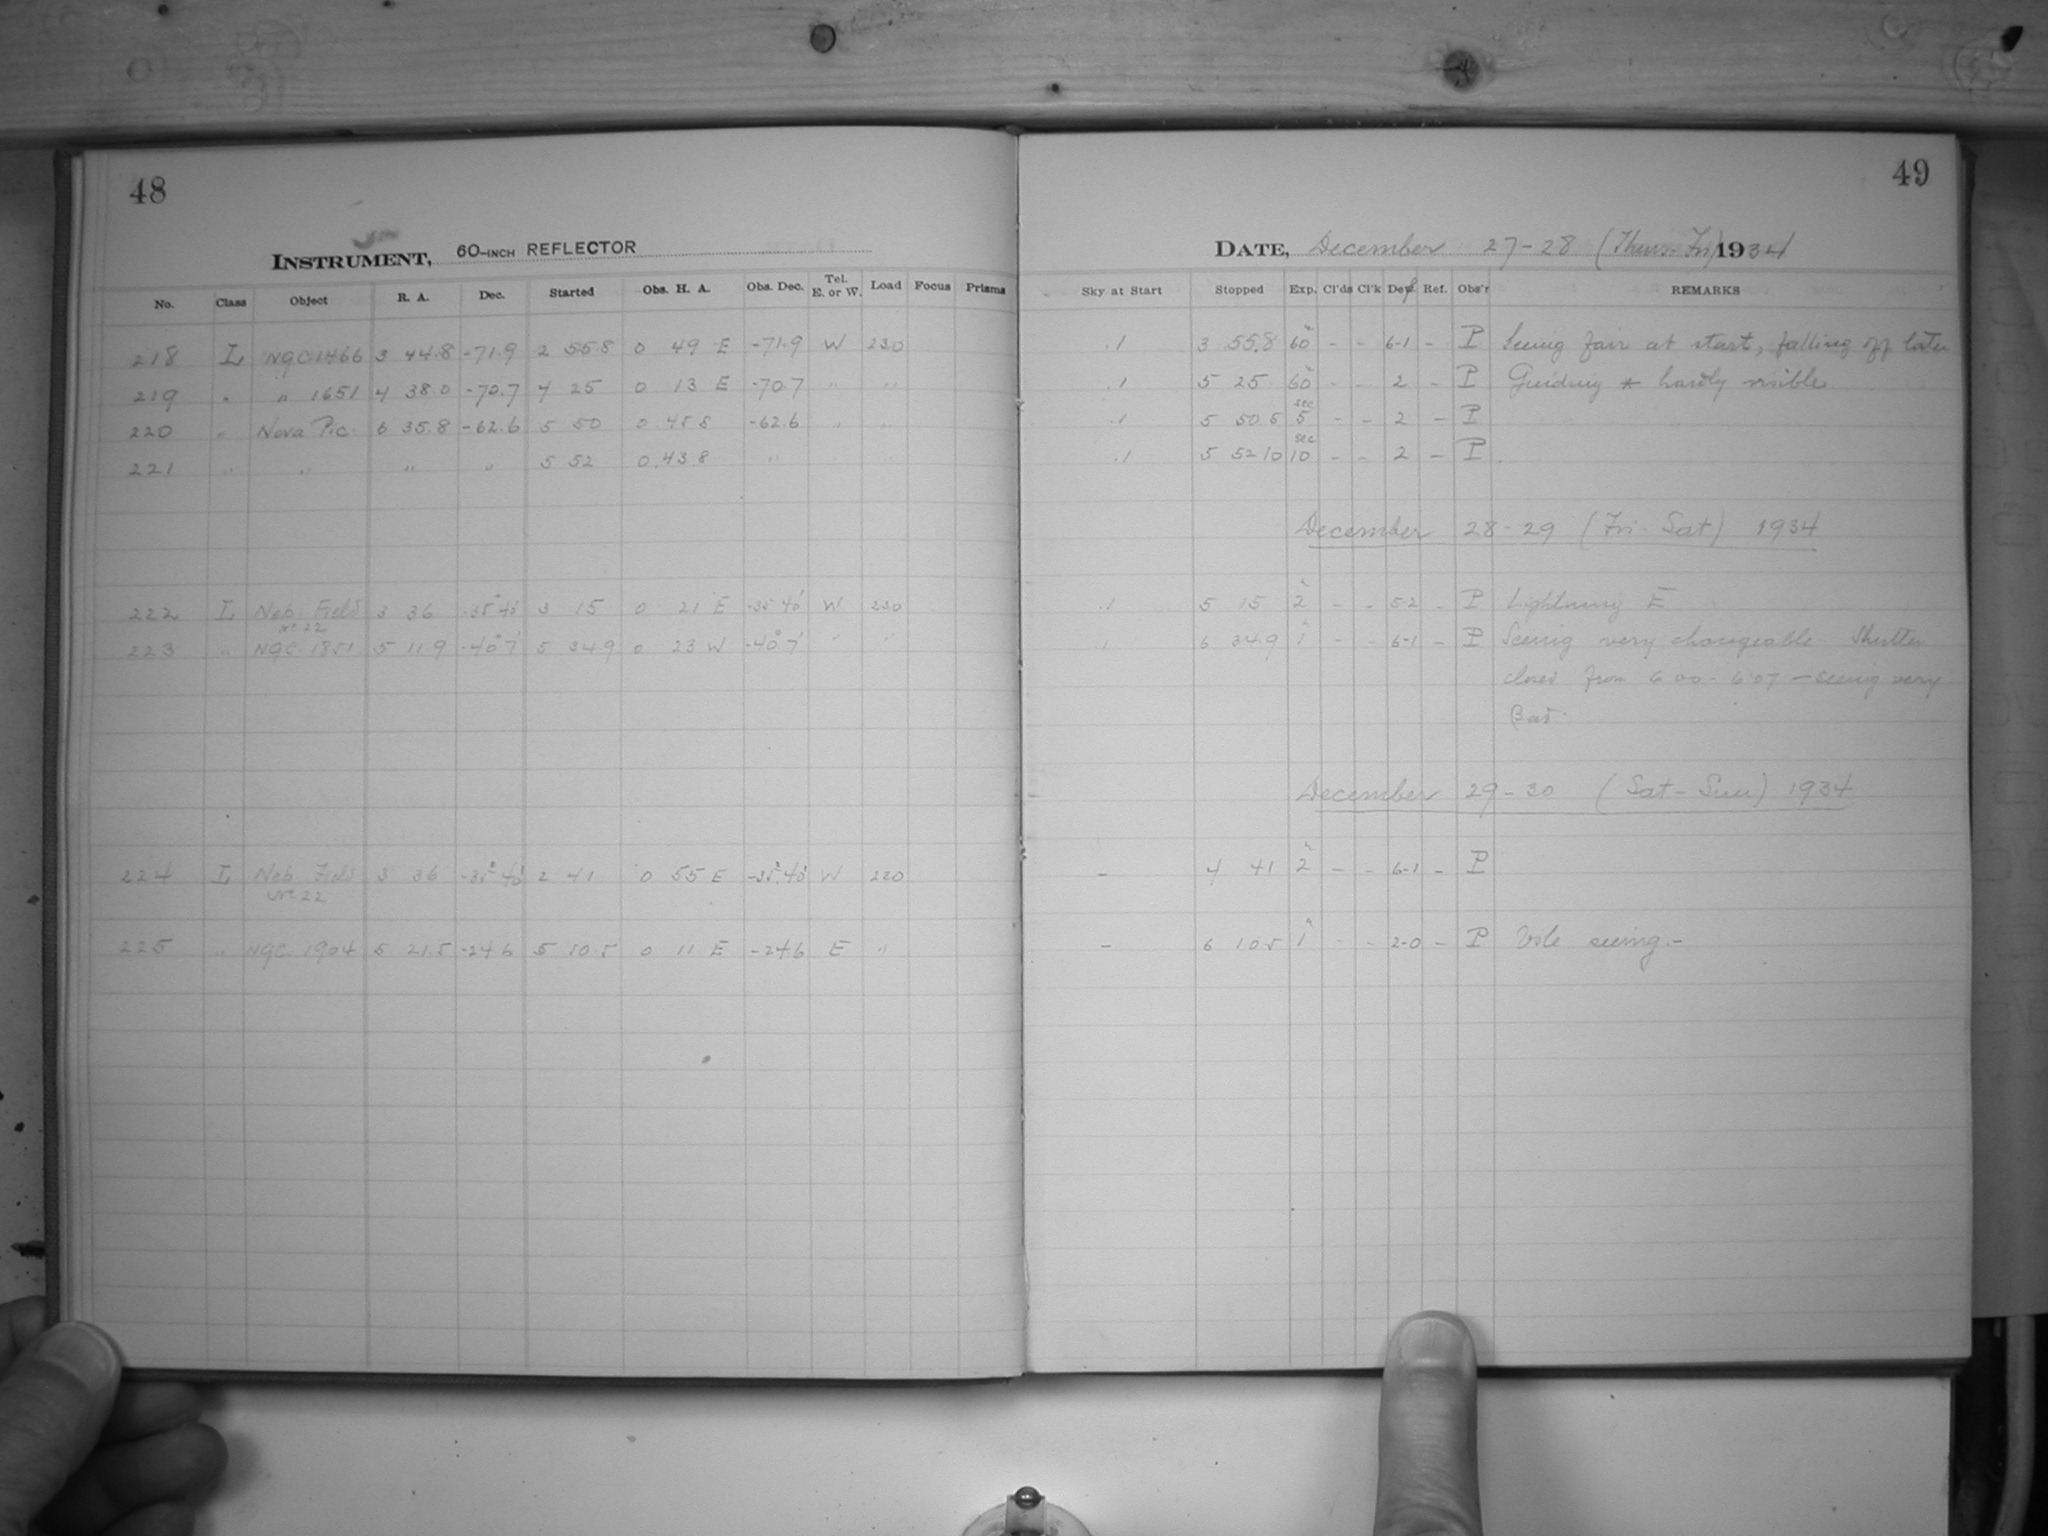 48
INSTRUMENT, 60-INCH REFLECTOR
No. Class Object R. A. Dec. Started Obs. H. A. Obs. Dec. Tel. E. or W. Load Focus Prisms
218 L NGC 1466 3 44.8 -71.9 2 55.8 0 49 E -71.9 W 230
219 " " 1651 4 38.0 -70.7 4 25 0 13 E -70.7 " "
220 " Nova Pic. 6 35.8 -62.6 5 50 0 45.8 -62.6 " "
221 " " " " 5 52 0.43.8 " " "
222 L Neb. Field 3 36 -35° 40' 3 15 0 21 E -35° 40' W 230
No 22
223 " NGC 1851 5 11 9 -40° 7' 5 34.9 0 23 W -40° 7' " "
224 L Neb. Field 3 36 -35° 40' 2 41 0 55 E -35° 40' W 230
No 22
225 " NGC 1904 5 21.5 -24.6 5 10.5 0 11 E -24.6 E "
49
DATE, December 27-28 (Thurs-Fri) 1934
Sky at Start Stopped Exp. Cl'ds Cl'k Def Ref. Obs'r REMARKS
.1 3 55.8 60m - - 6-1 - P Seeing fair at start, falling off later
.1 5 25 60m - - 2 - P Guiding * hardly visible
.1 5 50 5 5 sec - - 2 - P
.1 5 52 10 10 sec - - 2 - P.
December 28-29 (Fri-Sat) 1934
.1 5 15 2h - - 5-2 - P Lightning E
.1 6 34.9 1h - - 6-1 - P Seeing very changeable. Shutter
closed from 6 00 - 6 07 - seeing very
bad.
December 29-30 (Sat-Sun) 1934
- 4 41 2h - - 6-1 - P
- 6 10.5 1h - - 2-0 - P Vile seeing.-